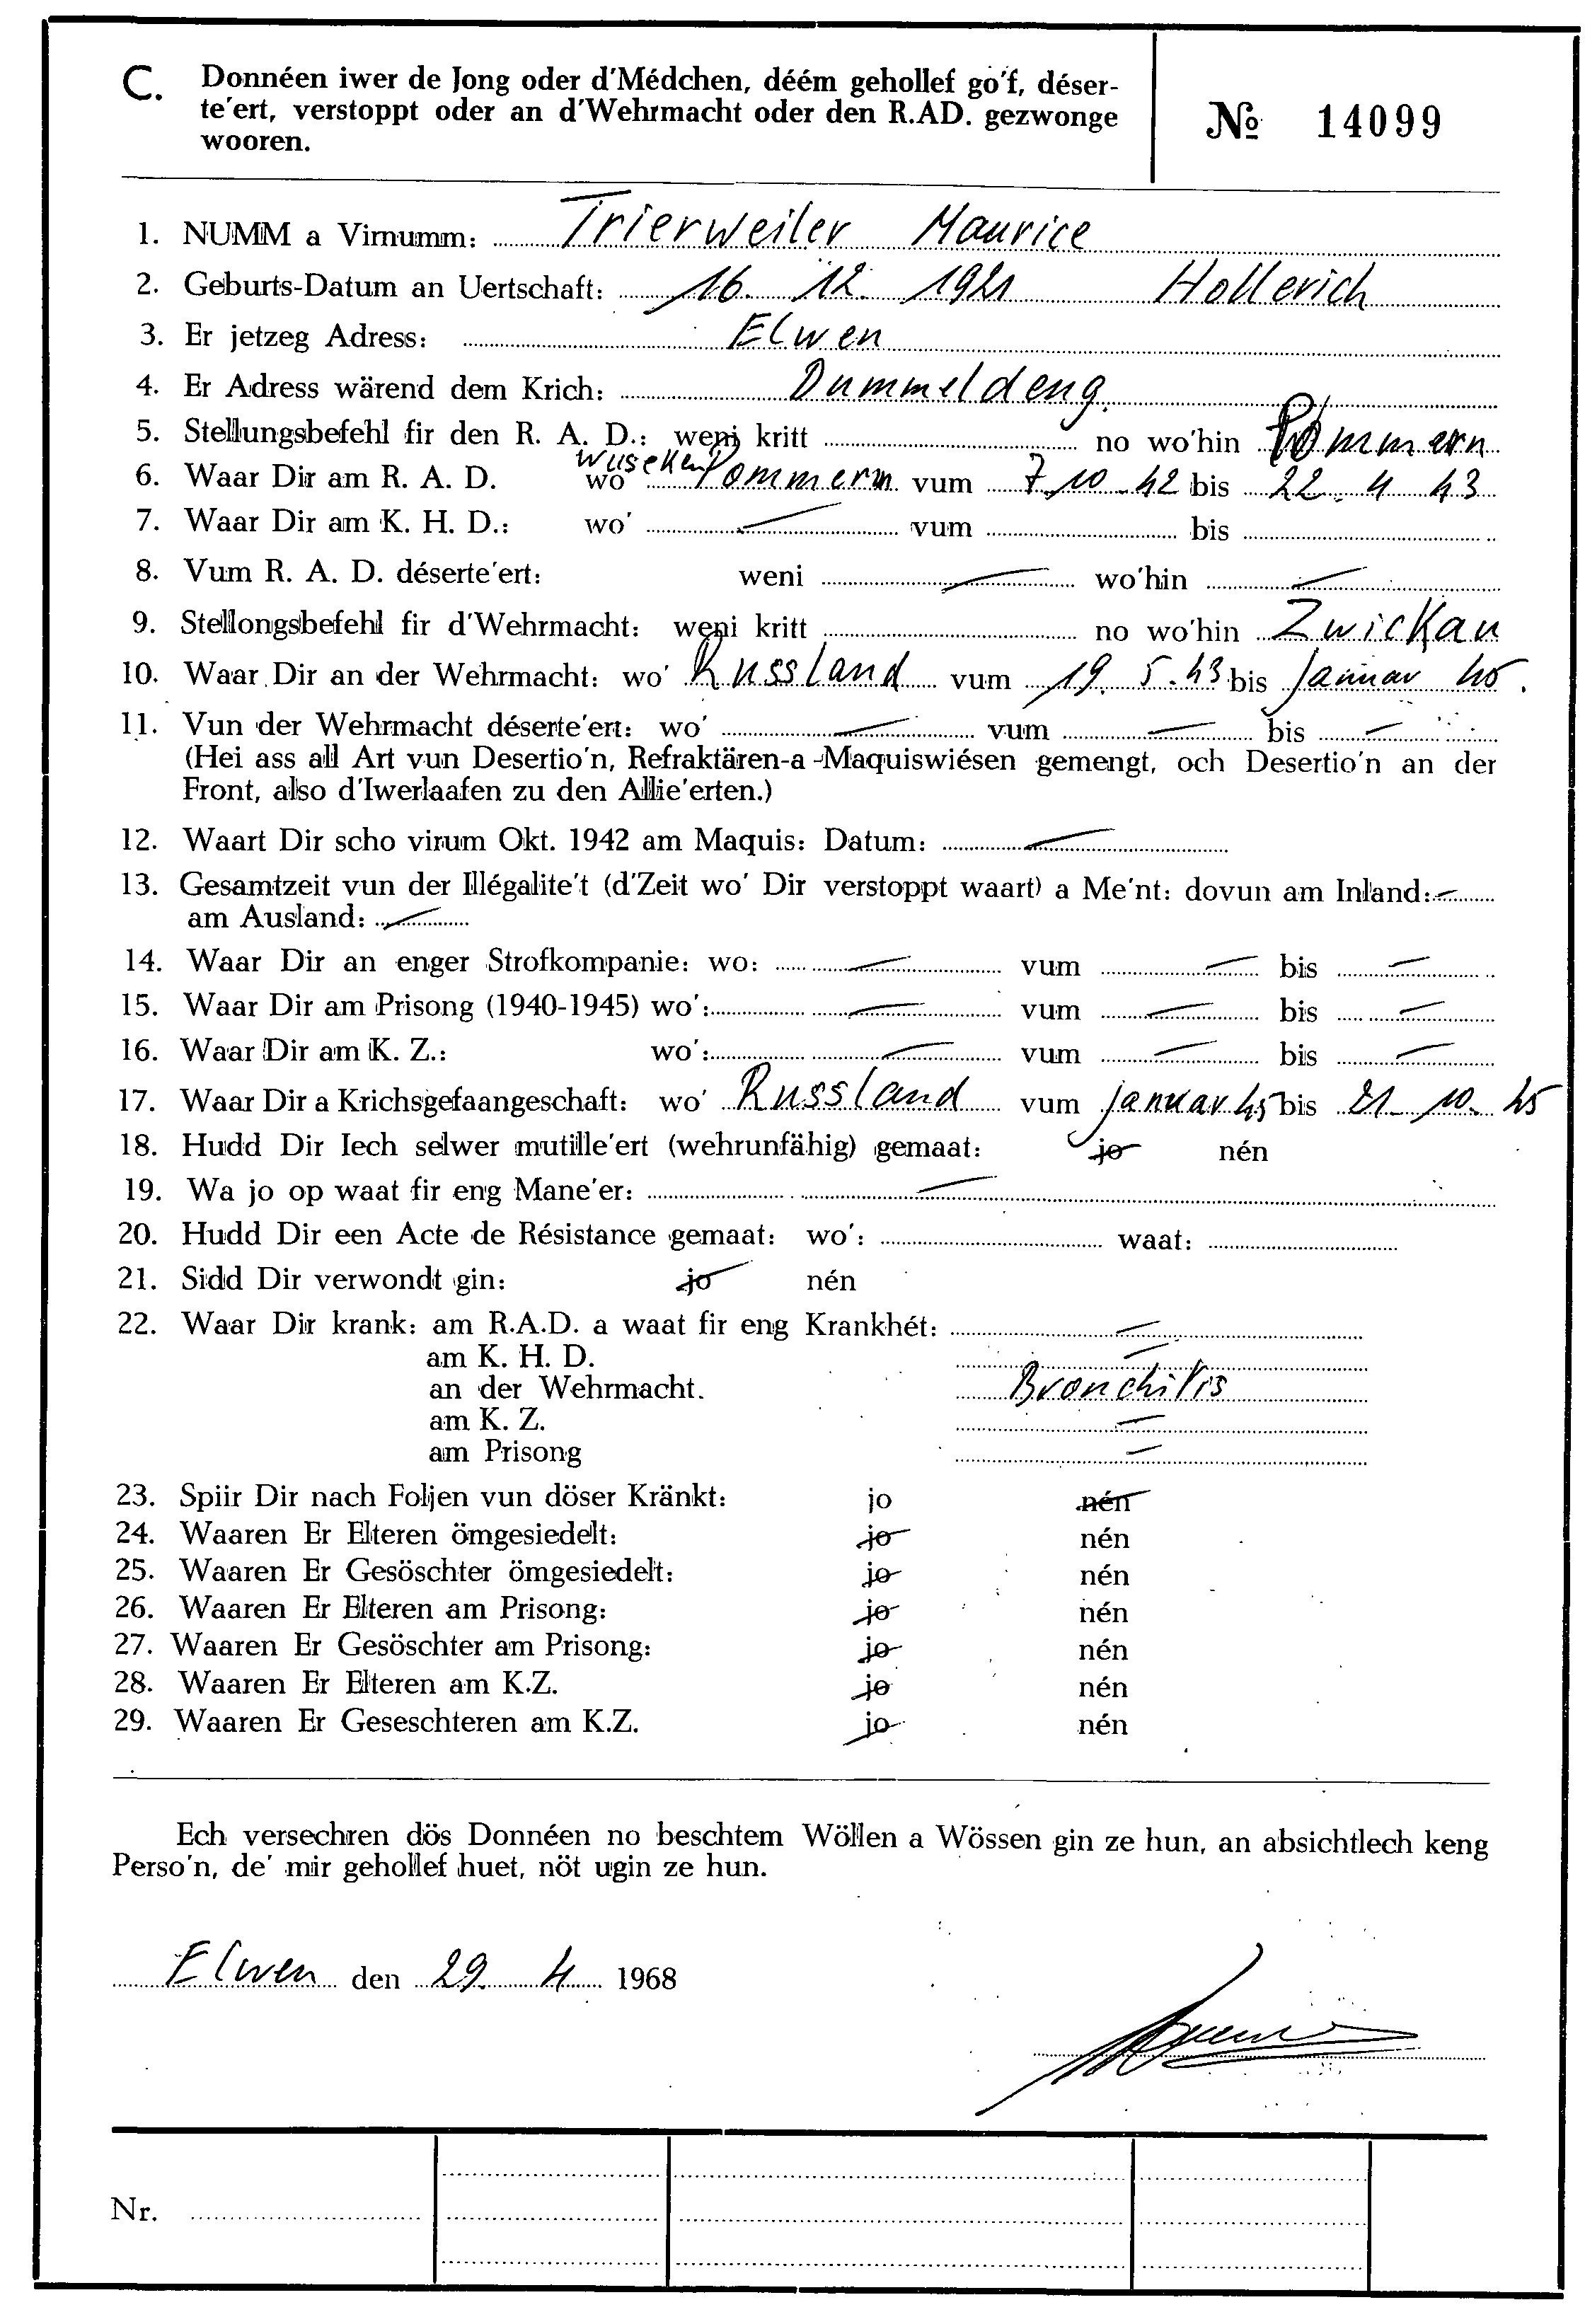 C. Donnéen iwer de Jong oder d'Médchen, déém gehollef go'f, déser-
te'ert, verstoppt oder an d'Wehrmacht oder den R.AD. gezwonge
wooren.
№ 14099
1. NUMM a Virnumm: Trierweiler Maurice
2. Geburts-Datum an Uertschaft: 16. 12. 1921 Hollerich
3. Er jetzeg Adress: Elwen
4. Er Adress wärend dem Krich: Dummeldeng.
5. Stellungsbefehl fir den R. A. D.: weni kritt no wo'hin Pommern
6. Waar Dir am R. A. D. wo' Wuseken Pommern vum 7.10.42 bis 22.4 43
7. Waar Dir am K. H. D.: wo' — vum bis
8. Vum R. A. D. déserte'ert: weni — wo'hin —
9. Stellongsbefehl fir d'Wehrmacht: weni kritt no wo'hin Zwickau
10. Waar Dir an der Wehrmacht: wo' Russland vum 19. 5. 43 bis Januar 45.
11. Vun der Wehrmacht déserte'ert: wo' — vum — bis —
(Hei ass all Art vun Desertio'n, Refraktären-a -Maquiswiésen gemengt, och Desertio'n an der
Front, also d'Iwerlaafen zu den Allie'erten.)
12. Waart Dir scho virum Okt. 1942 am Maquis: Datum: —
13. Gesamtzeit vun der Illégalite't (d'Zeit wo' Dir verstoppt waart) a Me'nt: dovun am Inland: —
am Ausland: —
14. Waar Dir an enger Strofkompanie: wo: — vum — bis —
15. Waar Dir am Prisong (1940-1945) wo': — vum — bis —
16. Waar Dir am K. Z.: wo': — vum — bis —
17. Waar Dir a Krichsgefaangeschaft: wo' Russland vum Januar 45 bis 21. 10. 45
18. Hudd Dir Iech selwer mutille'ert (wehrunfähig) gemaat: jo nén
19. Wa jo op waat fir eng Mane'er: —
20. Hudd Dir een Acte de Résistance gemaat: wo': waat:
21. Sidd Dir verwondt gin: jo nén
22. Waar Dir krank: am R.A.D. a waat fir eng Krankhét: —
am K. H. D. —
an der Wehrmacht. Bronchitis
am K. Z. —
am Prisong —
23. Spiir Dir nach Foljen vun döser Kränkt: jo nén
24. Waaren Er Elteren ömgesiedelt: jo nén
25. Waaren Er Gesöschter ömgesiedelt: jo nén
26. Waaren Er Elteren am Prisong: jo nén
27. Waaren Er Gesöschter am Prisong: jo nén
28. Waaren Er Elteren am K.Z. jo nén
29. Waaren Er Geseschteren am K.Z. jo nén
Ech versechren dös Donnéen no beschtem Wöllen a Wössen gin ze hun, an absichtlech keng
Perso'n, de' mir gehollef huet, nöt ugin ze hun.
Elwen den 29. 4 1968
Nr.